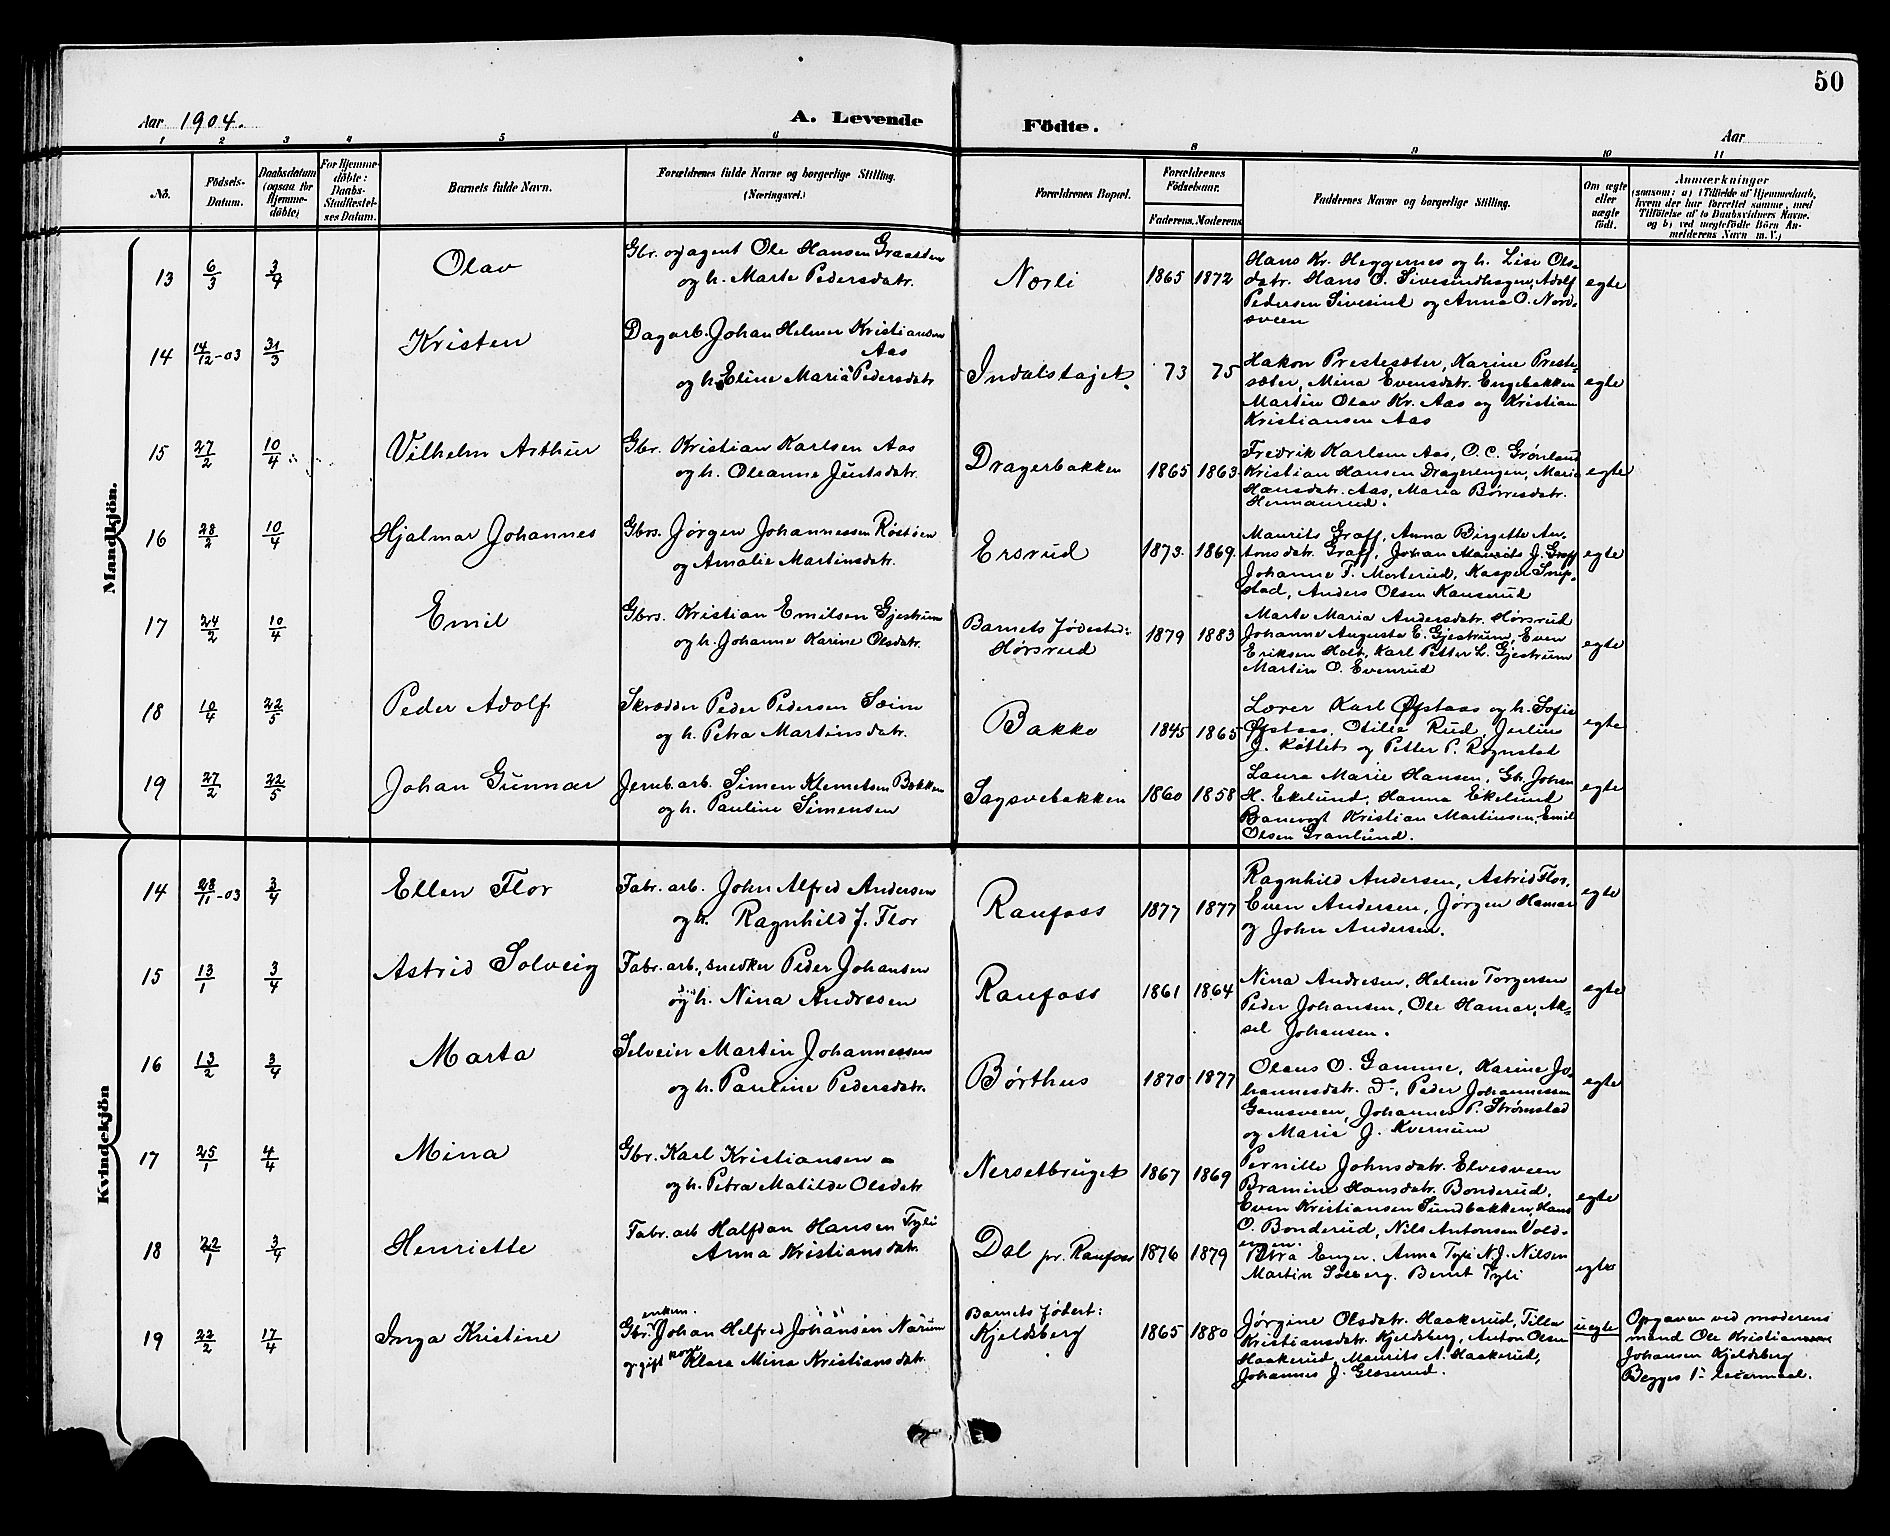 50
Aar 1904.
A. Levende Födte.
Aar
1 2 3 4 5 6 8 9 10 11
No.
Födsels-Datum.
Daabsdatum (ogsaa for Hjemmedöbte)
For Hjemmedöbte: Daabs-Stadfæstelses Datum.
Barnets fulde Navn.
Forældrenes fulde Navne og borgerlige Stilling. (Næringsvei.)
Forældrenes Bopæl.
Forældrenes Födselsaar.
Faderens. Moderens.
Faddernes Navne og borgerlige Stilling.
Om ægte eller uægte födt.
Anmærkninger
(saasom: a) i Tilfælde af Hjemmedaab,
hvem der har forrettet samme, med
Tilföielse af to Daabsvidners Navne.
og b) ved uægtefödte Börn An-
melderens Navn m. V.)
Mandkjön.
13 6/3 3/4 Olav
Gbr. og agent Ole Hansen Graasten
og h. Marte Pedersdatr.
Nærli 1865 1872
Hans Kr. Heggernes og h. Lise Ols-
datr. Hans O. Sivesindhagen, Adolf
Pedersen Sivesind og Anna O. Nord-
sveen
egte
14 14/12-03 31/3 Kristen
Dagarb. Johan Helmer Kristiansen
Aas
og h. Eline Maria Pedersdatr
Indalstajet 73 75
Hakon Prestesæter, Karine Preste-
sæter, Mina Evensdatr. Engebakken
Martin Olav Kr. Aas og Kristian
Kristiansen Aas
egte
15 27/2 10/4 Vilhelm Arthur
Gbr. Kristian Karlsen Aas
og h. Oleanne Juulsdatr.
Dragerbakken 1865 1863
Fredrik Karlsen Aas, O. C. Grönlund
Kristian Hansen Dragerengen, Maria
Hansdatr. Aas, Maria Börresdatr.
Hermanrud.
egte
16 28/2 10/4 Hjalmar Johannes
Gbrs. Jørgen Johannessen Røstøen
og Amalie Martinsdatr.
Ersrud 1873. 1869.
Maurits Graff, Anna Birgitte An-
tonsdatr. Graff, Johan Maurits J. Graff
Johanne T. Morterud, Kasper Snip-
stad, Anders Olsen Kanserud
egte
17 24/2 10/4 Emil
Gbrs. Kristian Emilsen Gjestrum
og h. Johanne Karine Olsdatr.
Barnets fødested:
Hørsrud 1879 1883
Marte Maria Andersdatr. Hørsrud
Johanne Auguste E. Gjestrum, Even
Eriksen Holt, Karl Petter L. Gjestrum
Martin O. Evenrud
egte
18 10/4 22/5 Peder Adolf
Skrædder Peder Pedersen Sæim
og h. Petra Martinsdatr.
Bakke 1845 1865
Lærer Karl Øfstaas og h. Sofie
Øfstaas, Otilie Rud, Julius
J. Køttet og Petter P. Rognstad
egte
19 27/2 22/5 Johan Gunnar
Jernb. arb. Simen Klemetsen Bakken
og h. Pauline Simensen
Sagsvebakken 1860 1858
Laura Marie Hansen, Gb. Johan
H. Ekelund, Hanna Ekelund
Banevogt Kristian Martinsen, Emil
Olsen Granlund.
egte
Kvindekjön
14 28/11-03 3/4 Ellen Flor
Fabr. arb. John Alfred Andersen
og h. Ragnhild J. Flor
Raufoss 1877 1877
Ragnhild Andersen, Astrid Flor,
Even Andersen, Jørgen Hamar
og John Andersen.
egte
15 13/1 3/4 Astrid Solveig
Fabr. arb., snedker Peder Johansen
og h. Nina Andresen
Raufoss 1861 1864
Nina Andresen, Helene Torgersen
Peder Johansen, Ole Hamar, Ak-
sel Johansen.
egte
16 13/2 3/4 Marta
Selveier Martin Johannessen
og h. Pauline Pedersdatr.
Børthus 1870 1877
Olaus O. Gamme, Karine Jo-
hannesdatr. Do, Peder Johannessen
Gamsveen, Johannes P. Strømstad
og Marie J. Kvernum
egte
17 25/1 4/4 Mina
Gbr. Karl Kristiansen
og h. Petra Matilde Olsdatr
Nersetbruget 1867 1869
Pernille Johnsdatr. Elvesveen
Bramine Hansdatr. Bonderud,
Even Kristiansen Sundbakken, Hans
O. Bonderud, Nils Antonsen Vold-
engen.
egte
18 22/1 3/4 Henriette
Fabr. arb Halfdan Hansen Tyli
Anna Kristiansdatr.
Dal pr. Raufoss 1876 1879
Petra Enger, Anna Tyli N. J. Nilsen
Martin Solberg, Bernt Tyli
egte
19 22/2 17/4 Inga Kristine
enkem.
Gbr. Johan Helfred Johansen Narum
og gift kone Klara Mina Kristiansdatr.
Barnets fødest:
Kjeldsberg 1865 1880
Jørgine Olsdatr. Haakerud, Tilla
Kristiansdatr. Kjeldsberg, Anton Olsen
Haakerud, Maurits A. Haakerud,
Johannes J. Glæserud.
uegte
Opgaven ved moderens
mand Ole Kristian
Johansen Kjeldsberg
Begges 1ste leiermaal.